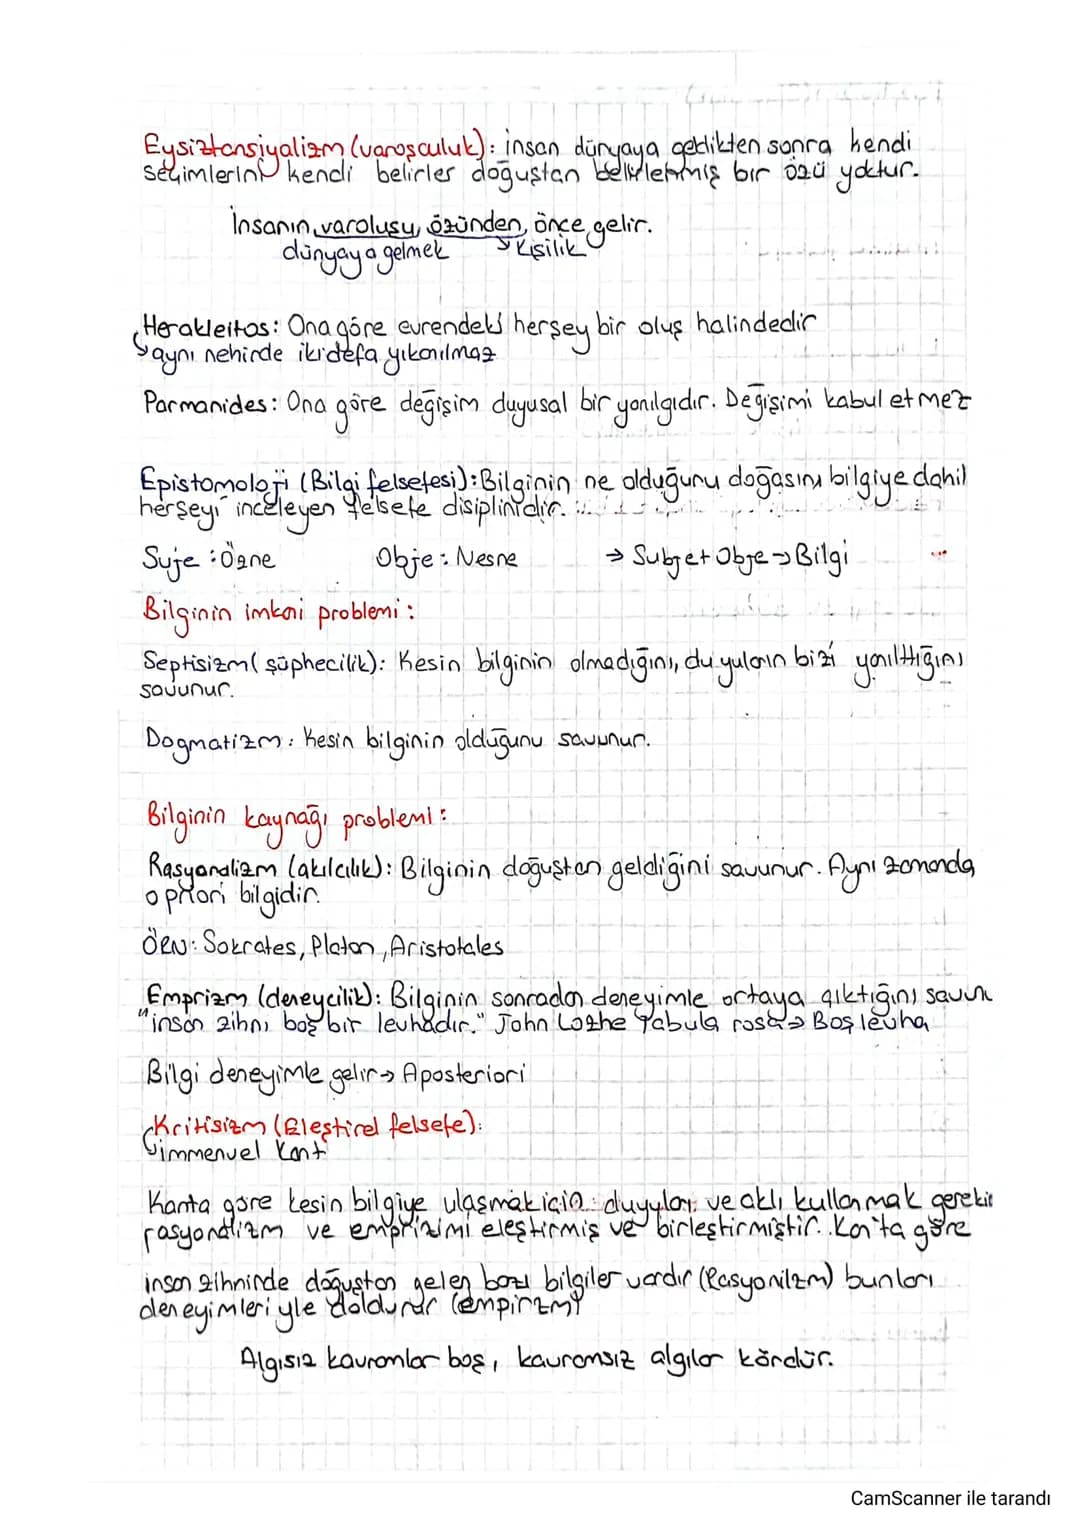 Eysiztansiyalizm (varoşculuk): insan dünyaya geldikten sonra kendi
seçimlerini kendi belirler doğuştan belirlenmiş bir özü yoktur.
İnsanın varoluşu, özünden, önce gelir.
dünyaya gelmek → Kişilik
Herakleitos: Ona göre evrendeki herşey bir oluş halindedir
→ aynı nehirde iki defa yıkanılmaz
Parmanides: Ona göre değişim duyusal bir yanılgıdır. Değişimi kabul etmez
Epistomoloji (Bilgi felsefesi): Bilginin ne olduğunu doğasını bilgiye dahil
herşeyi inceleyen felsefe disiplinidir.
Suje : Özne Obje : Nesne → Subjet Obje → Bilgi
Bilginin imkanı problemi :
Septisizm( şüphecilik): Kesin bilginin olmadığını, duyuların bizi yanılttığını
savunur.
Dogmatizm : Kesin bilginin olduğunu savunur.
Bilginin kaynağı problemi :
Rasyonalizm (akılcılık): Bilginin doğuştan geldiğini savunur. Aynı zamanda
a priori bilgidir.
ÖRN: Sokrates, Platon, Aristotales
Emprizm (deneycilik): Bilginin sonradan deneyimle ortaya çıktığını savun
"insan zihni boş bir levhadır." John Lozhe Tabula rosa → Boş levha
Bilgi deneyimle gelir → Aposteriori
Kritisizm (Eleştirel felsefe):
→ immenuel Kant
Kanta göre kesin bilgiye ulaşmak için duyuları ve aklı kullanmak gerekir
rasyonalizm ve emprizimi eleştirmiş ve birleştirmiştir. Kan'ta göre
insan zihninde doğuştan gelen bazı bilgiler vardır (Rasyonilzm) bunları
deneyimleriyle doldurur (empirizm)
Algısız kavramlar boş, kavramsız algılar kördür.
CamScanner ile tarandı